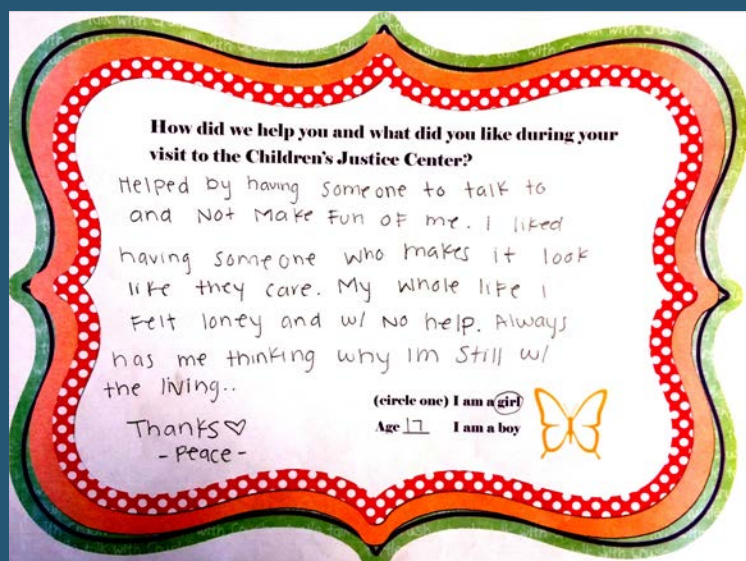 How did we help you and what did you like during your
visit to the Children's Justice Center?
Helped by having someone to talk to
and Not Make Fun OF me. I liked
having someone who makes it look
like they care. My whole life I
Felt loney and w/ No help. Always
has me thinking why Im Still w/
the living..
(circle one) I am a girl
Thanks♡
Age 17 I am a boy
- Peace -